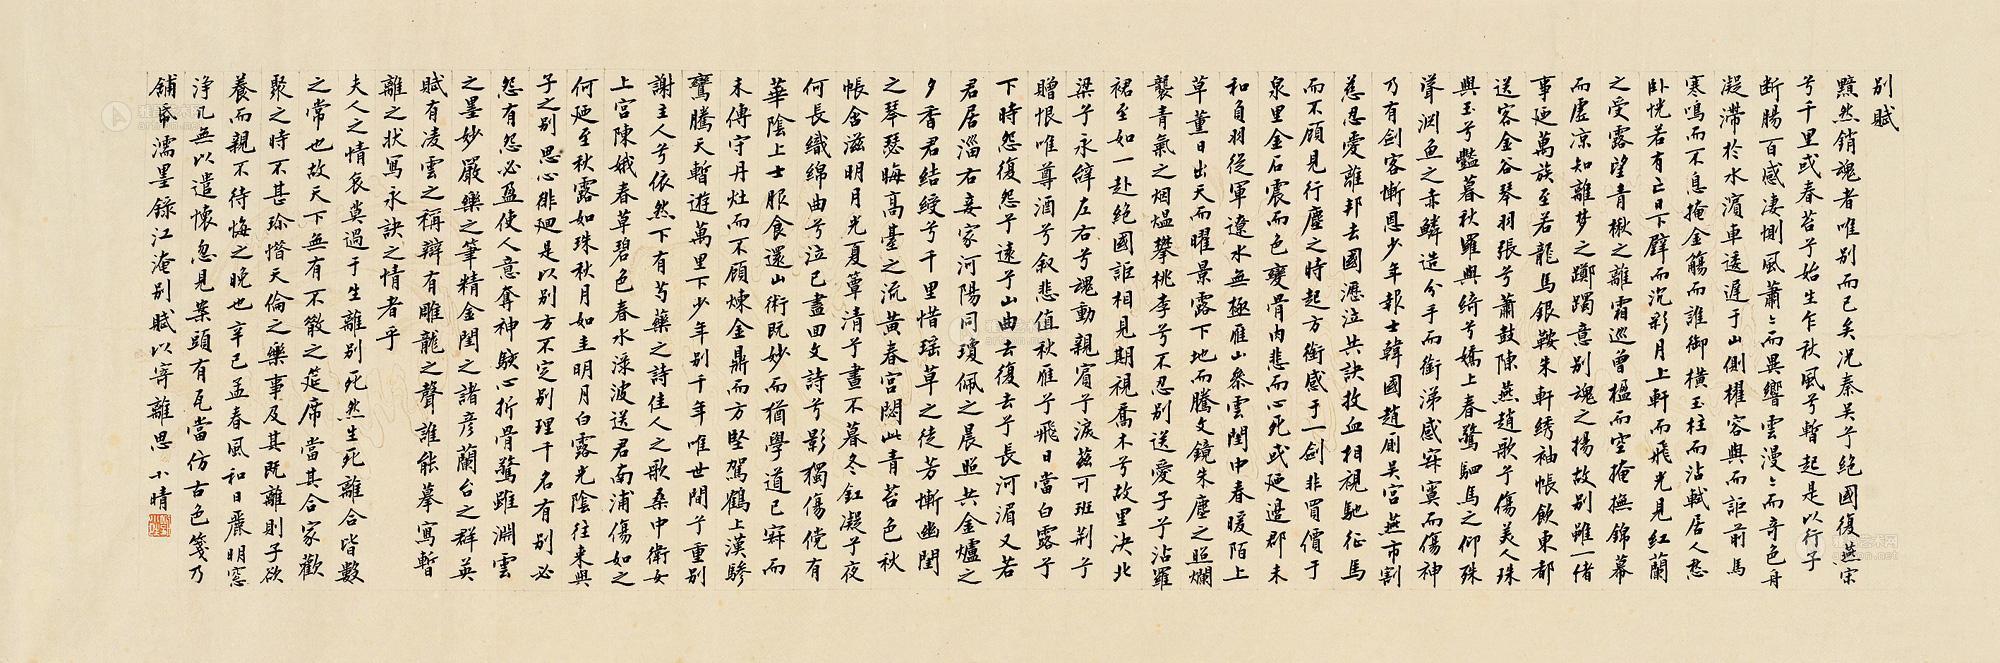 别賦
黯然銷魂者唯别而已矣况秦吴兮绝國復燕宋
兮千里或春苔兮始生乍秋風兮暫起是以行子
断腸百感凄惻風蕭〻而異響雲漫〻而奇色舟
凝滯於水濱車逶遲于山側櫂容與而詎前馬
寒鳴而不息掩金觴而誰御橫玉柱而沾軾居人愁
卧怳若有亡日下壁而沉彩月上軒而飛光見紅蘭
之受露望青楸之離霜巡曾楹而空掩撫錦幕
而虛凉知離梦之躑躅意别魂之揚故别雖一绪
事迺萬族至若龍馬銀鞍朱軒綉袖帳飲東都
送客金谷琴羽張兮蕭鼓陳燕趙歌兮傷美人珠
與玉兮豔暮秋羅與綺兮嬌上春驚駟馬之仰秣
聳渊鱼之赤鱗造分手而銜涕感寂寞而傷神
乃有劍客慚恩少年報士韓國趙厠吴宫燕市割
慈忍愛離邦去國瀝泣共訣抆血相視馳征馬
而不顧見行塵之時起方銜感于一劍非買價于
泉里金石震而色變骨肉悲而心死或迺邊郡未
和負羽從軍遼水無極雁山參雲閨中春暖陌上
草薰日出天而曜景露下地而騰文鏡朱塵之照爛
襲青氣之烟煴攀桃李兮不忍别送愛子兮沾羅
裙至如一赴绝國詎相見期視喬木兮故里决北
梁兮永辞左右兮魂動親賓兮淚茲可班荆兮
贈恨唯尊酒兮叙悲值秋雁兮飛日當白露兮
下時怨復怨兮遠兮山曲去復去兮長河湄又若
君居淄右妾家河陽同瓊佩之晨照共金爐之
夕香君結綬兮千里惜瑶草之徒芳慚幽閨
之琴瑟晦高臺之流黄春宫閟此青苔色秋
帳含滋明月光夏簟清兮晝不暮冬釭凝兮夜
何長織綿曲兮泣已盡回文詩兮影獨傷儻有
華陰上士服食還山術既妙而猶學道已寂而
未傳守丹灶而不顧煉金鼎而方堅駕鶴上漢驂
鸞騰天暫遊萬里下少年别千年唯世間兮重别
謝主人兮依然下有芍藥之詩佳人之歌桑中衛女
上宫陳娥春草碧色春水渌波送君南浦傷如之
何迺至秋露如珠秋月如圭明月白露光陰往来與
子之别思心徘徊是以别方不定别理千名有别必
怨有怨必盈使人意奪神駭心折骨驚雖渊雲
之墨妙嚴樂之筆精金閨之諸彦蘭台之群英
賦有凌雲之稱辯有雕龍之聲誰能摹寫暫
離之状寫永訣之情者乎
夫人之情哀莫過于生離别死然生死離合皆數
之常也故天下無有不散之筵席當其合家歡
聚之時不甚珍惜天倫之樂事及其既離則子欲
養而親不待悔之晚也辛巳孟春風和日麗明窓
浄几無以遣懷忽見案頭有瓦當仿古色箋乃
鋪帋濡墨錄江淹别賦以寄離思 小晴